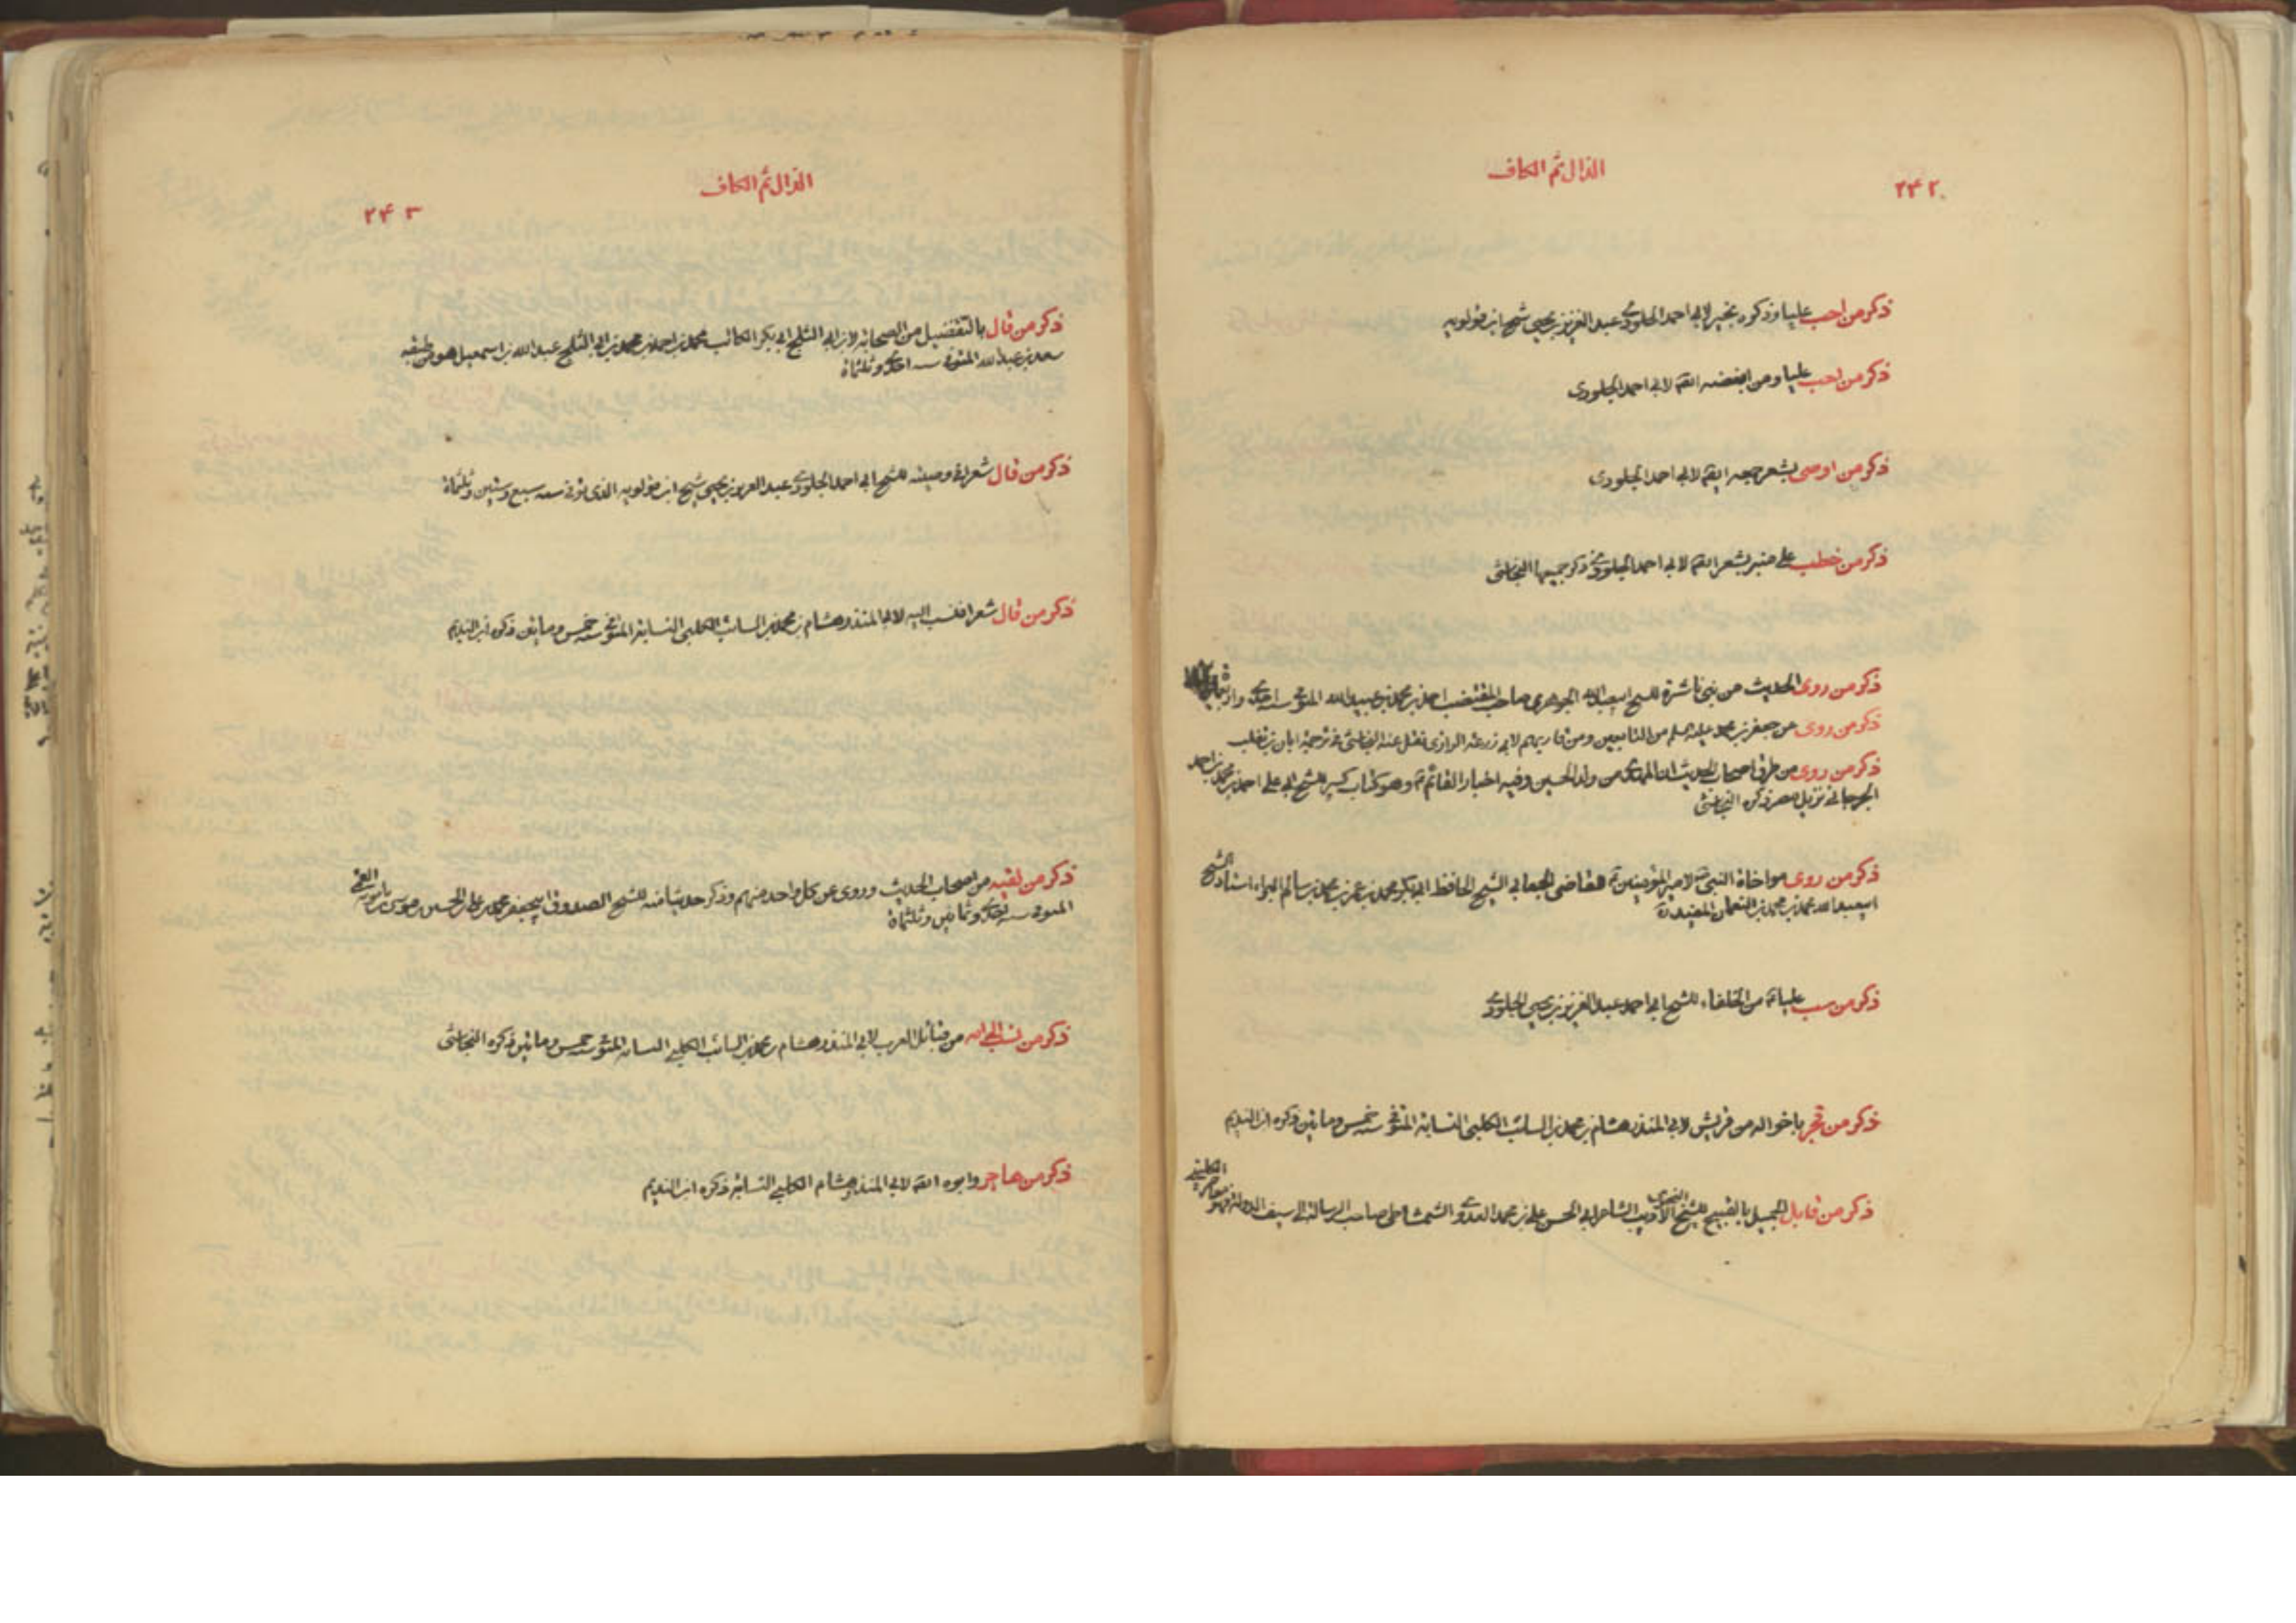 الذال ثم الكاف
٢٤٢
ذكر من احب عليا وذكره بخير لابي احمد الجلودي عبد العزيز بن يحيى شيخ ابن قولويه
ذكر من احب عليا ومن ابغضه ايضا لابي احمد الجلودي
ذكر من اوصى بشعر جمعه ايضا لابي احمد الجلودي
ذكر من خطب على منبر بشعر ايضا لابي احمد الجلودي ذكر جميعها النجاشي
ذكر من روى الحديث من بني ناشرة للشيخ ابيعبدالله الجوهري صاحب المقتضب احمد بن محمد بن عبيدالله المتوفى سنه احدى واربعمائة
ذكر من روى عن جعفر بن محمد من التابعين ومن قاربهم لابي زرعة الرازي نقل عنه النجاشي في ترجمة ابان بن تغلب
ذكر من روى من طرق اصحاب الحديث ان المهدي من ولد الحسين وفيه اخبار القائم ع وهو كتاب كبير للشيخ ابي علي احمد بن محمد بن احمد
الجرجاني نزيل مصر ذكره النجاشي
ذكر من روى مواخاة النبي ص لامير المؤمنين ع للقاضي الجعابي الشيخ الحافظ ابي بكر محمد بن عمر بن محمد بن سالم البراء استاد الشيخ
ابيعبدالله محمد بن محمد بن النعمان المفيد ره
ذكر من سب عليا ع من الخلفاء للشيخ ابي احمد عبد العزيز بن يحيى الجلودي
ذكر من فجر باخواله من قريش لابي المنذر هشام بن محمد بن السائب الكلبي النسابة المتوفى سنه خمس وماتين ذكره ابن النديم
ذكر من قابل الجميل بالقبيح للشيخ الاديب النحوي الشاعر ابي الحسن علي بن محمد العدوي الشمشاطي صاحب الرسالة الى سيف الدولة فهو معاصر الكليني
الذال ثم الكاف
٢٤٣
ذكر من قال بالتفضيل من الصحابة لابن ابي الثلج ابي بكر الكاتب محمد بن احمد بن محمد بن ابي الثلج عبدالله بن اسمعيل هو من طبقة
سعد بن عبدالله المتوفى سنه احدى وثلثماة
ذكر من قال شعرا في وصيته للشيخ ابي احمد الجلودي عبد العزيز بن يحيى شيخ ابن قولويه الذي توفى سنه سبع وستين وثلثماة
ذكر من قال شعرا فنسب اليه لابي المنذر هشام بن محمد بن السائب الكلبي النسابة المتوفى سنه خمس وماتين ذكره ابن النديم
ذكر من لقيه من اصحاب الحديث وروى عن كل واحد منهم وذكر حديثا منه للشيخ الصدوق ابيجعفر محمد بن علي بن الحسين بن موسى بن بابويه القمي
المتوفى سنه احدى وثمانين وثلثماة
ذكر من نسب الى امه من قبائل العرب لابي المنذر هشام بن محمد بن السائب الكلبي النسابة المتوفى سنه خمس وماتين ذكره النجاشي
ذكر من هاجر وابوه ايضا لابي المنذر هشام الكلبي النسابة ذكره ابن النديم